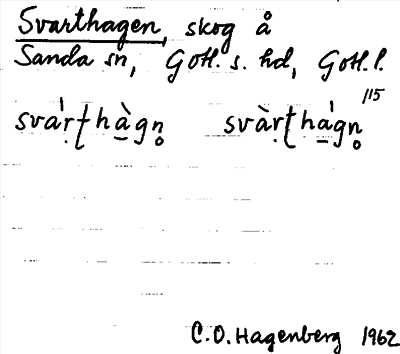 Svarthagen, skog å
Sanda sn, Gotl. s. hd, Gotl. l.
115
svárʈhàgn̥ svàrʈhágn̥
C. O. Hagenberg 1962